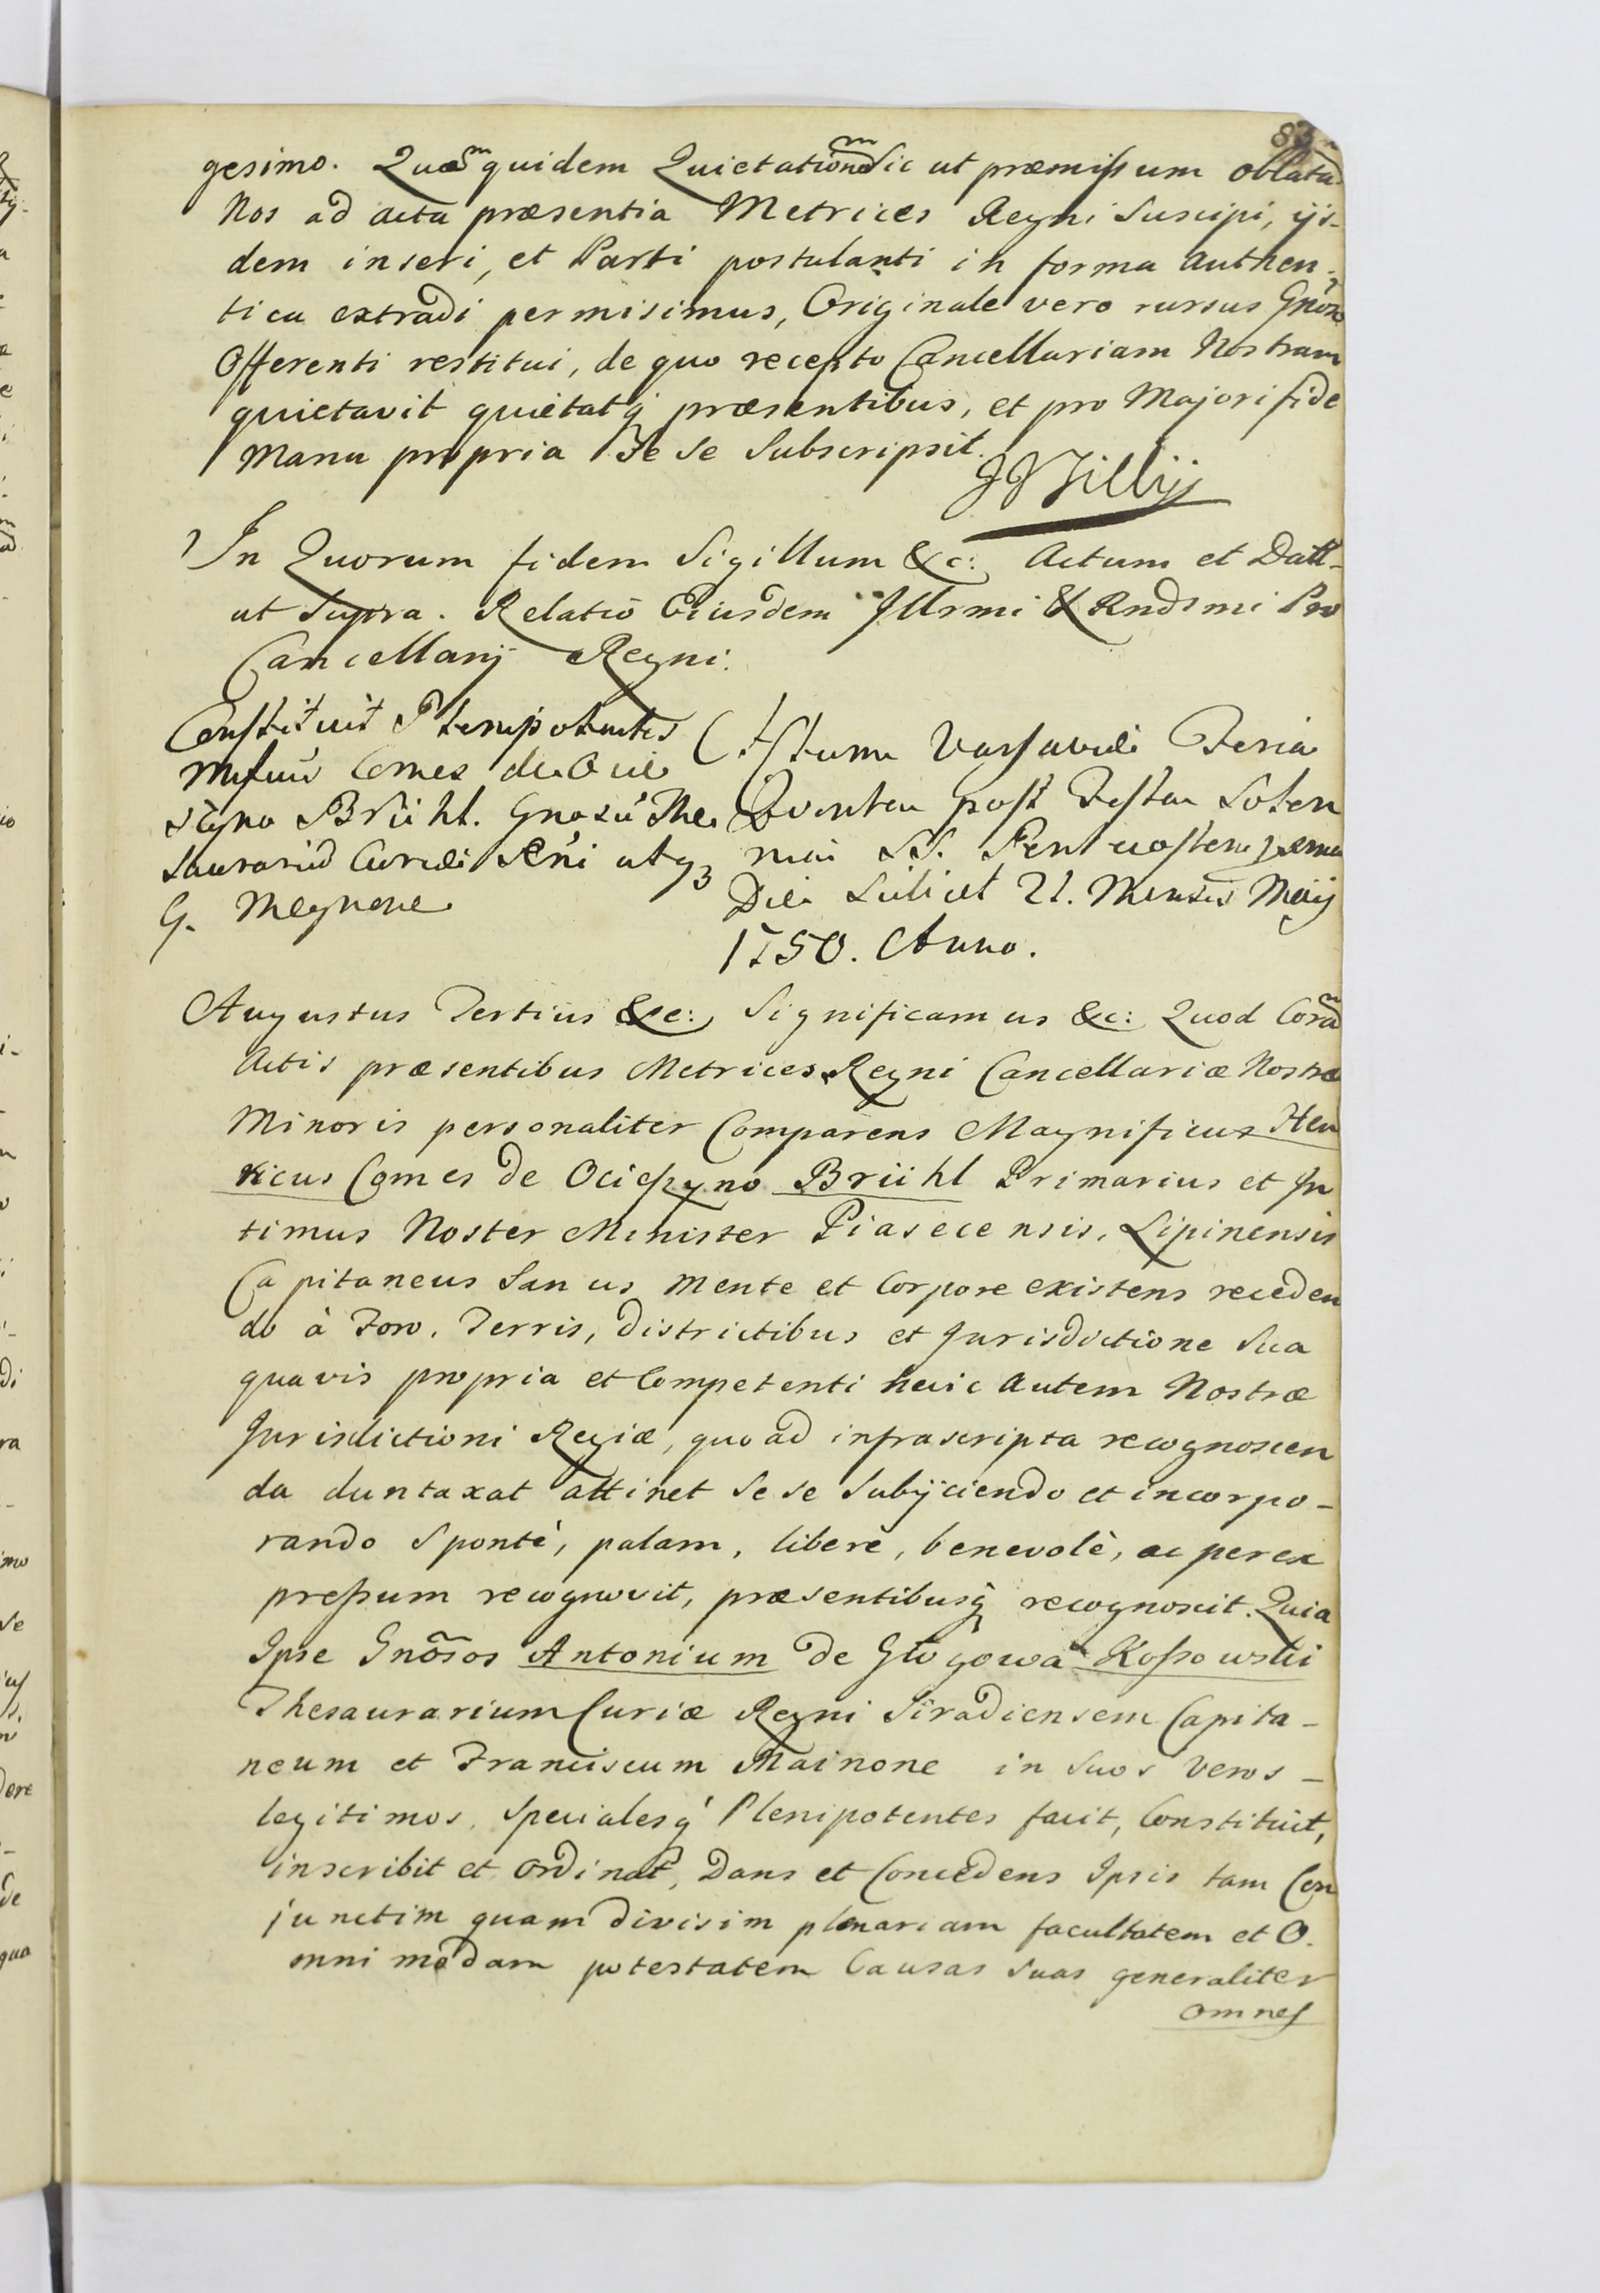 83
gesimo. Quam quidem Quietationem Sic ut præmissum oblatam
Nos ad acta præsentia Metrices Regni Suscipi, ijs-
dem inseri, et Parti postulanti in forma Authen-
tica extradi permisimus, Originale vero rursus Gnoso
Offerenti restitui, de quo recepto Cancellariam Nostram
quietavit quietatq præsentibus, et pro Majori fide
Manu propria Se Se Subscripsit.
JJ Tillij
In Quorum fidem Sigillum &c: Actum et Datt-
ut Supra. Relatio Eiusdem Illrmi & Rndsmi Pro
Cancellarij Regni.
Constituit Plenipotentes
Comes de Ocie
szyno Brühl. Gnosu The
saurariu Curiæ Rni atq3
G. Meynone
Actum Varsaviæ Feria
Quinta post Festa Solen
nia SS. Pentecostes pma
Die Scilicet 21. Mensis Maij
1750. Anno.
Augustus Tertius &c: Significamus &c: Quod Coram
Actis præsentibus Metrices Regni Cancellariæ Nostræ
Minoris personaliter Comparens Magnificus Hen
ricus Comes de Ocieszyno Brühl Primarius et In
timus Noster Minister Piasecensis, Lipinensis
Capitaneus Sanus Mente et Corpore existens receden
do à Foro, Terris, districtibus et Jurisdictione Sua
quavis propria et Competenti huic Autem Nostræ
Jurisdictioni Regiæ, quoad infrascripta recognoscen
da duntaxat attinet Se se Subijciendo et incorpo-
rando Spontè, palam, liberè, benevolè, ac per ex
pressum recognovit, præsentibusq recognoscit. Quia
Ipse Gnosos Antonium de Głogowa Kossowski
Thesaurarium Curiæ Regni Siradiensem Capita-
neum et Franciscum Mainone in Suos Veros-
legitimos, Specialesq Plenipotentes facit, Constituit,
inscribit et Ordinat, Dans et Concedens Ipsis tam Con
junctim quam divisim plenariam facultatem et O.
mnimodam potestatem Causas Suas generaliter
omnes